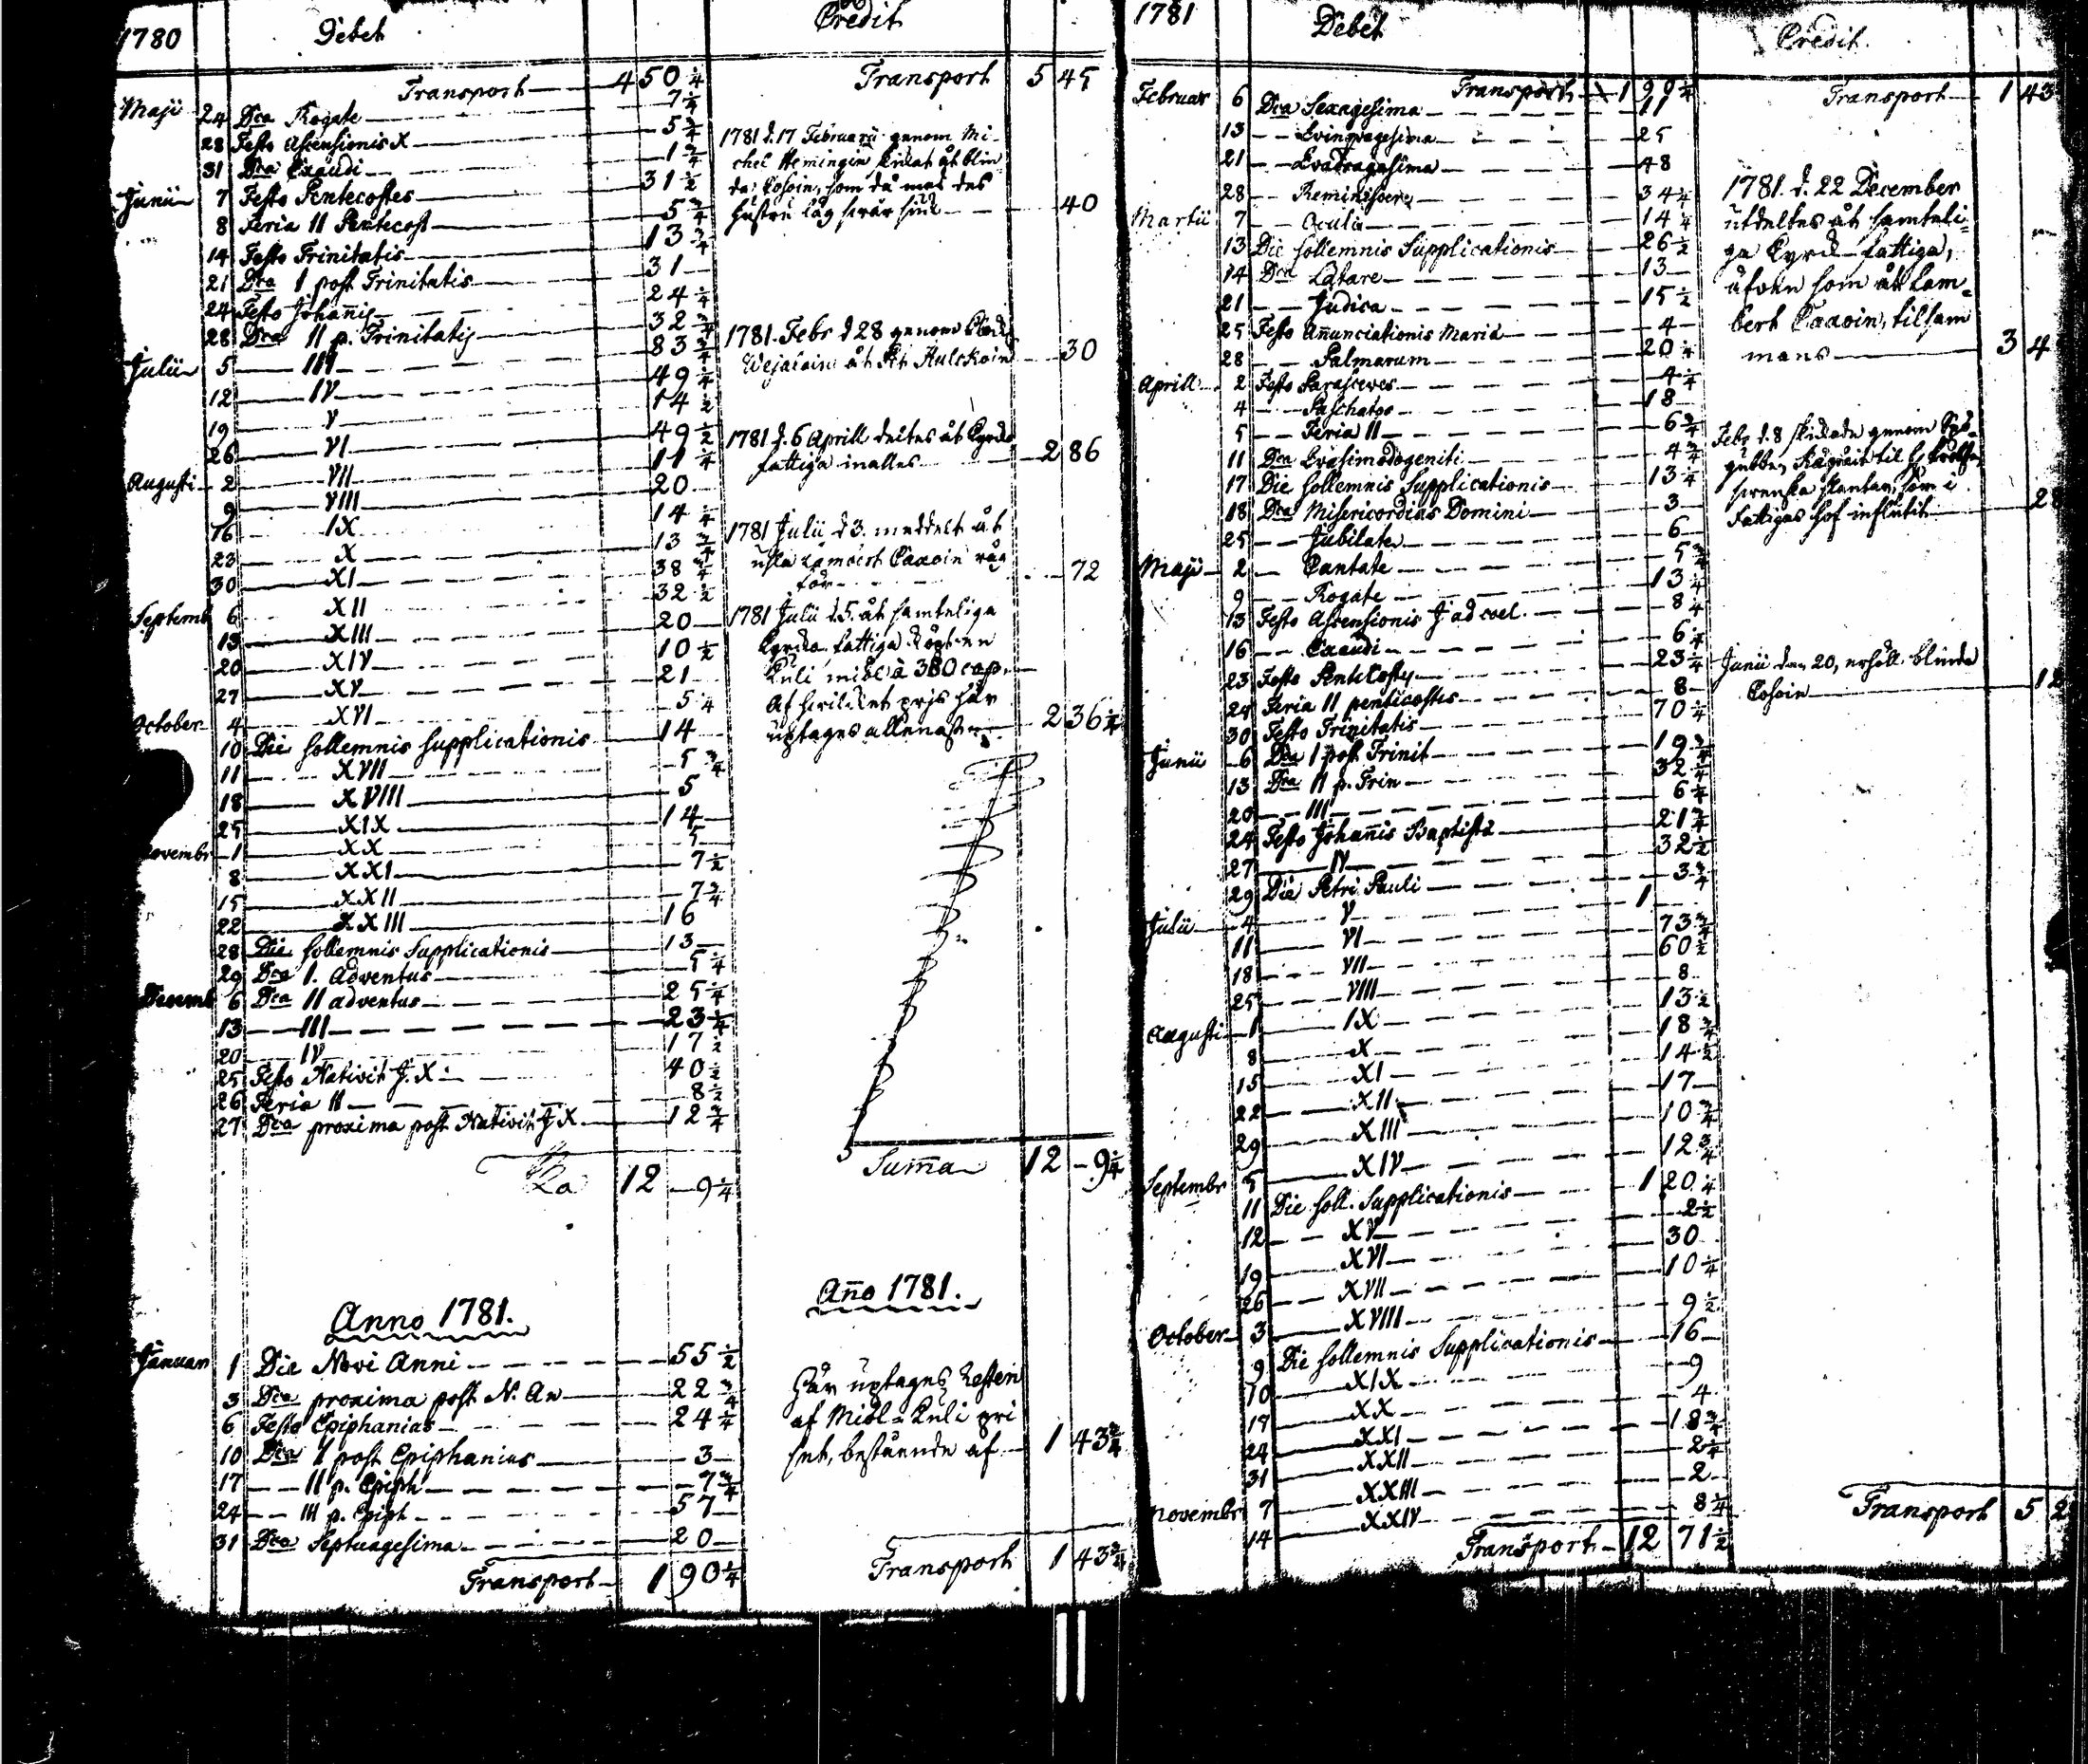 1780 Debet Credit
Transport 4 50 1/4 Transport 5 45
Maji 24 Dca Rogate 7 1/4
28 Festo Ascensionis X 5 3/4
31 Dca Exaudi 1 3/4
Junii 7 Festo Pentecostes 31 1/2
8 Feria II Pentecost 5 3/4
14 Festo Trinitatis 13 3/4
21 Dca I post Trinitatis 31
24 Festo Johanis 24 1/4
28 Dca II p. Trinitatis 32 3/4
Julii 5 III 83 3/4
12 IV 49 1/4
19 V 14 1/2
26 VI 49 1/2
Augusti 2 VII 11 1/4
9 VIII 20
16 IX 14 1/4
23 X 13 3/4
30 XI 38 3/4
Septemb 6 XII 32 1/2
13 XIII 20
20 XIV 10 1/2
27 XV 21
October 4 XVI 5 1/4
10 Die sollemnis supplicationis 14
11 XVII 5 3/4
18 XVIII 5
25 XIX 14
Novembr 1 XX 5
8 XXI 7 1/2
15 XXII 7 3/4
22 XXIII 16
28 Die sollemnis Supplicationis 13
29 Dca I. Adventus 5 1/4
Decemb 6 Dca II adventus 25 1/4
13 III 23 1/4
20 IV 17 1/2
25 Festo Nativit J. X 40 1/2
26 Feria II 8 1/2
27 Dca proxima post Nativit J X 12 3/4
12 9 1/4
1781 d. 17 Februarii genom Mi-
chel Hemingin åt blin
da Cosoin, som då med des
hustru låg svår siuk 40
1781 Febr d 28 genom
åt Hulskoin 30
1781 d. 6 Aprill deltes åt Kyrko
fattiga inalles 2 86
1781 Julii d 3. meddelt åt
usla Lambert Caxoin råg
för 72
1781 Julii d. 5. åt samteliga
Kyrko fattiga
Kuli miöl à 380 cop.
Af hvilket pris här
uptages allenast 2 36 1/4
Suma 12 9 1/4
Anno 1781.
Januari 1 Die Novi Anni 55 1/2
3 Dca proxima post N. An 22 3/4
6 Festo Epiphanias 24 1/4
10 Dca I post Epiphanias 3
17 II p. Epiph 7 3/4
24 III p. Epiph 57
31 Dca Septuagesima 20
Transport 1 90 1/4
Año 1781.
Här uptages Resten
af Miöl-Kuli pri
set, bestående af 1 43 3/4
Transport 1 43 3/4
1781 Debet Credit
Transport 1 90 1/4 Transport 1 43
Februar 6 Dca Sexagesima 11
13 Qvinqvagesima 25
21 Qvadragesima 48
28 Reminiscere 34 1/4
Martii 7 Oculi 14 1/4
13 Die sollemnis Supplicationis 26 1/2
14 Dca Lätare 13
21 Judica 15 1/2
25 Festo Anunciationis Mariä 4
28 Palmarum 20 1/4
Aprill 2 Festo Parasceves 4 1/4
4 Paschatos 18
5 Feria II 6 3/4
11 Dca Qvasimodogeniti 4 3/4
17 Die sollemnis Supplicationis 13 1/4
18 Dca Misericordias Domini 3
25 Jubilate 6
Maji 2 Cantate 5 3/4
9 Rogate 13 1/4
13 Festo Ascensionis J ad coel. 8 1/4
16 Exaudi 6 1/4
23 Festo Pentecostes 23 1/4
24 Feria II penticostes 8
30 Festo Trinitatis 70 1/4
Junii 6 Dca I post Trinit 19 3/4
13 Dca II p. Trin 32 1/4
20 III 6 1/4
24 Festo Johanis Baptistä 21 3/4
27 IV 32 1/2
29 Die Petri Pauli 3 3/4
Julii 4 V 1
11 VI 73 3/4
18 VII 60 1/2
25 VIII 8
Augusti 1 IX 13 1/2
8 X 18 3/4
15 XI 14 1/2
22 XII 17
29 XIII 10 3/4
Septembr 5 XIV 12 3/4
11 Die soll. Supplicationis 1 20 1/4
12 XV 2 1/2
19 XVI 30
26 XVII 10 1/4
October 3 XVIII 9 1/2
9 Die sollemnis Supplicationis 16
10 XIX 9
17 XX 4
24 XXI 18 3/4
31 XXII 2 1/4
Novembr 7 XXIII 2
14 XXIV 8 1/4
Transport 12 71 1/2
1781. d. 22 December
utdeltes åt samteli-
ga Kyrko fattiga,
åfven som åt Lam-
bert Caxoin, tilsam
mans 3 4
Febr d. 8 skickade genom
til
svenska som i
fattigas hof influtit 28
Junii den 20, erhöll blinda
Cosoin 12
Transport 5 2